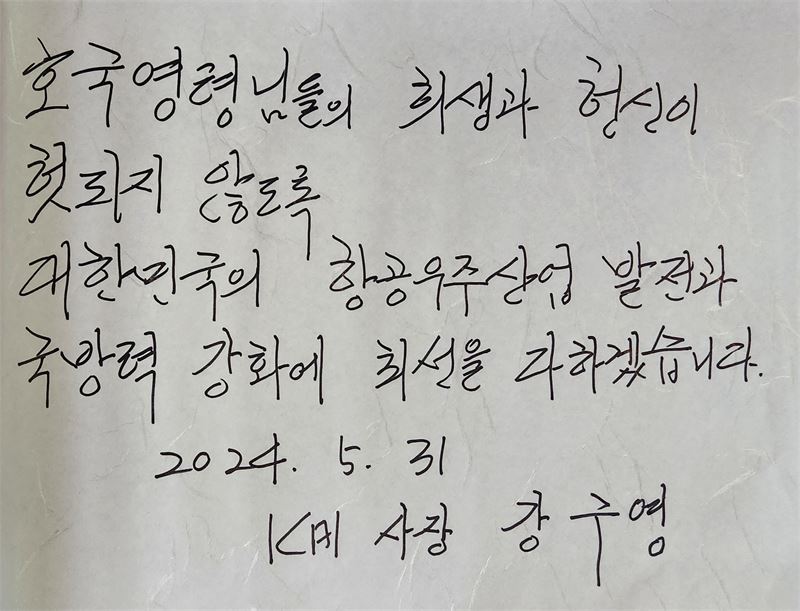 호국영령님들의 희생과 헌신이
헛되지 않도록
대한민국의 항공우주산업 발전과
국방력 강화에 최선을 다하겠습니다.
2024. 5. 31
KAI 사장 강구영